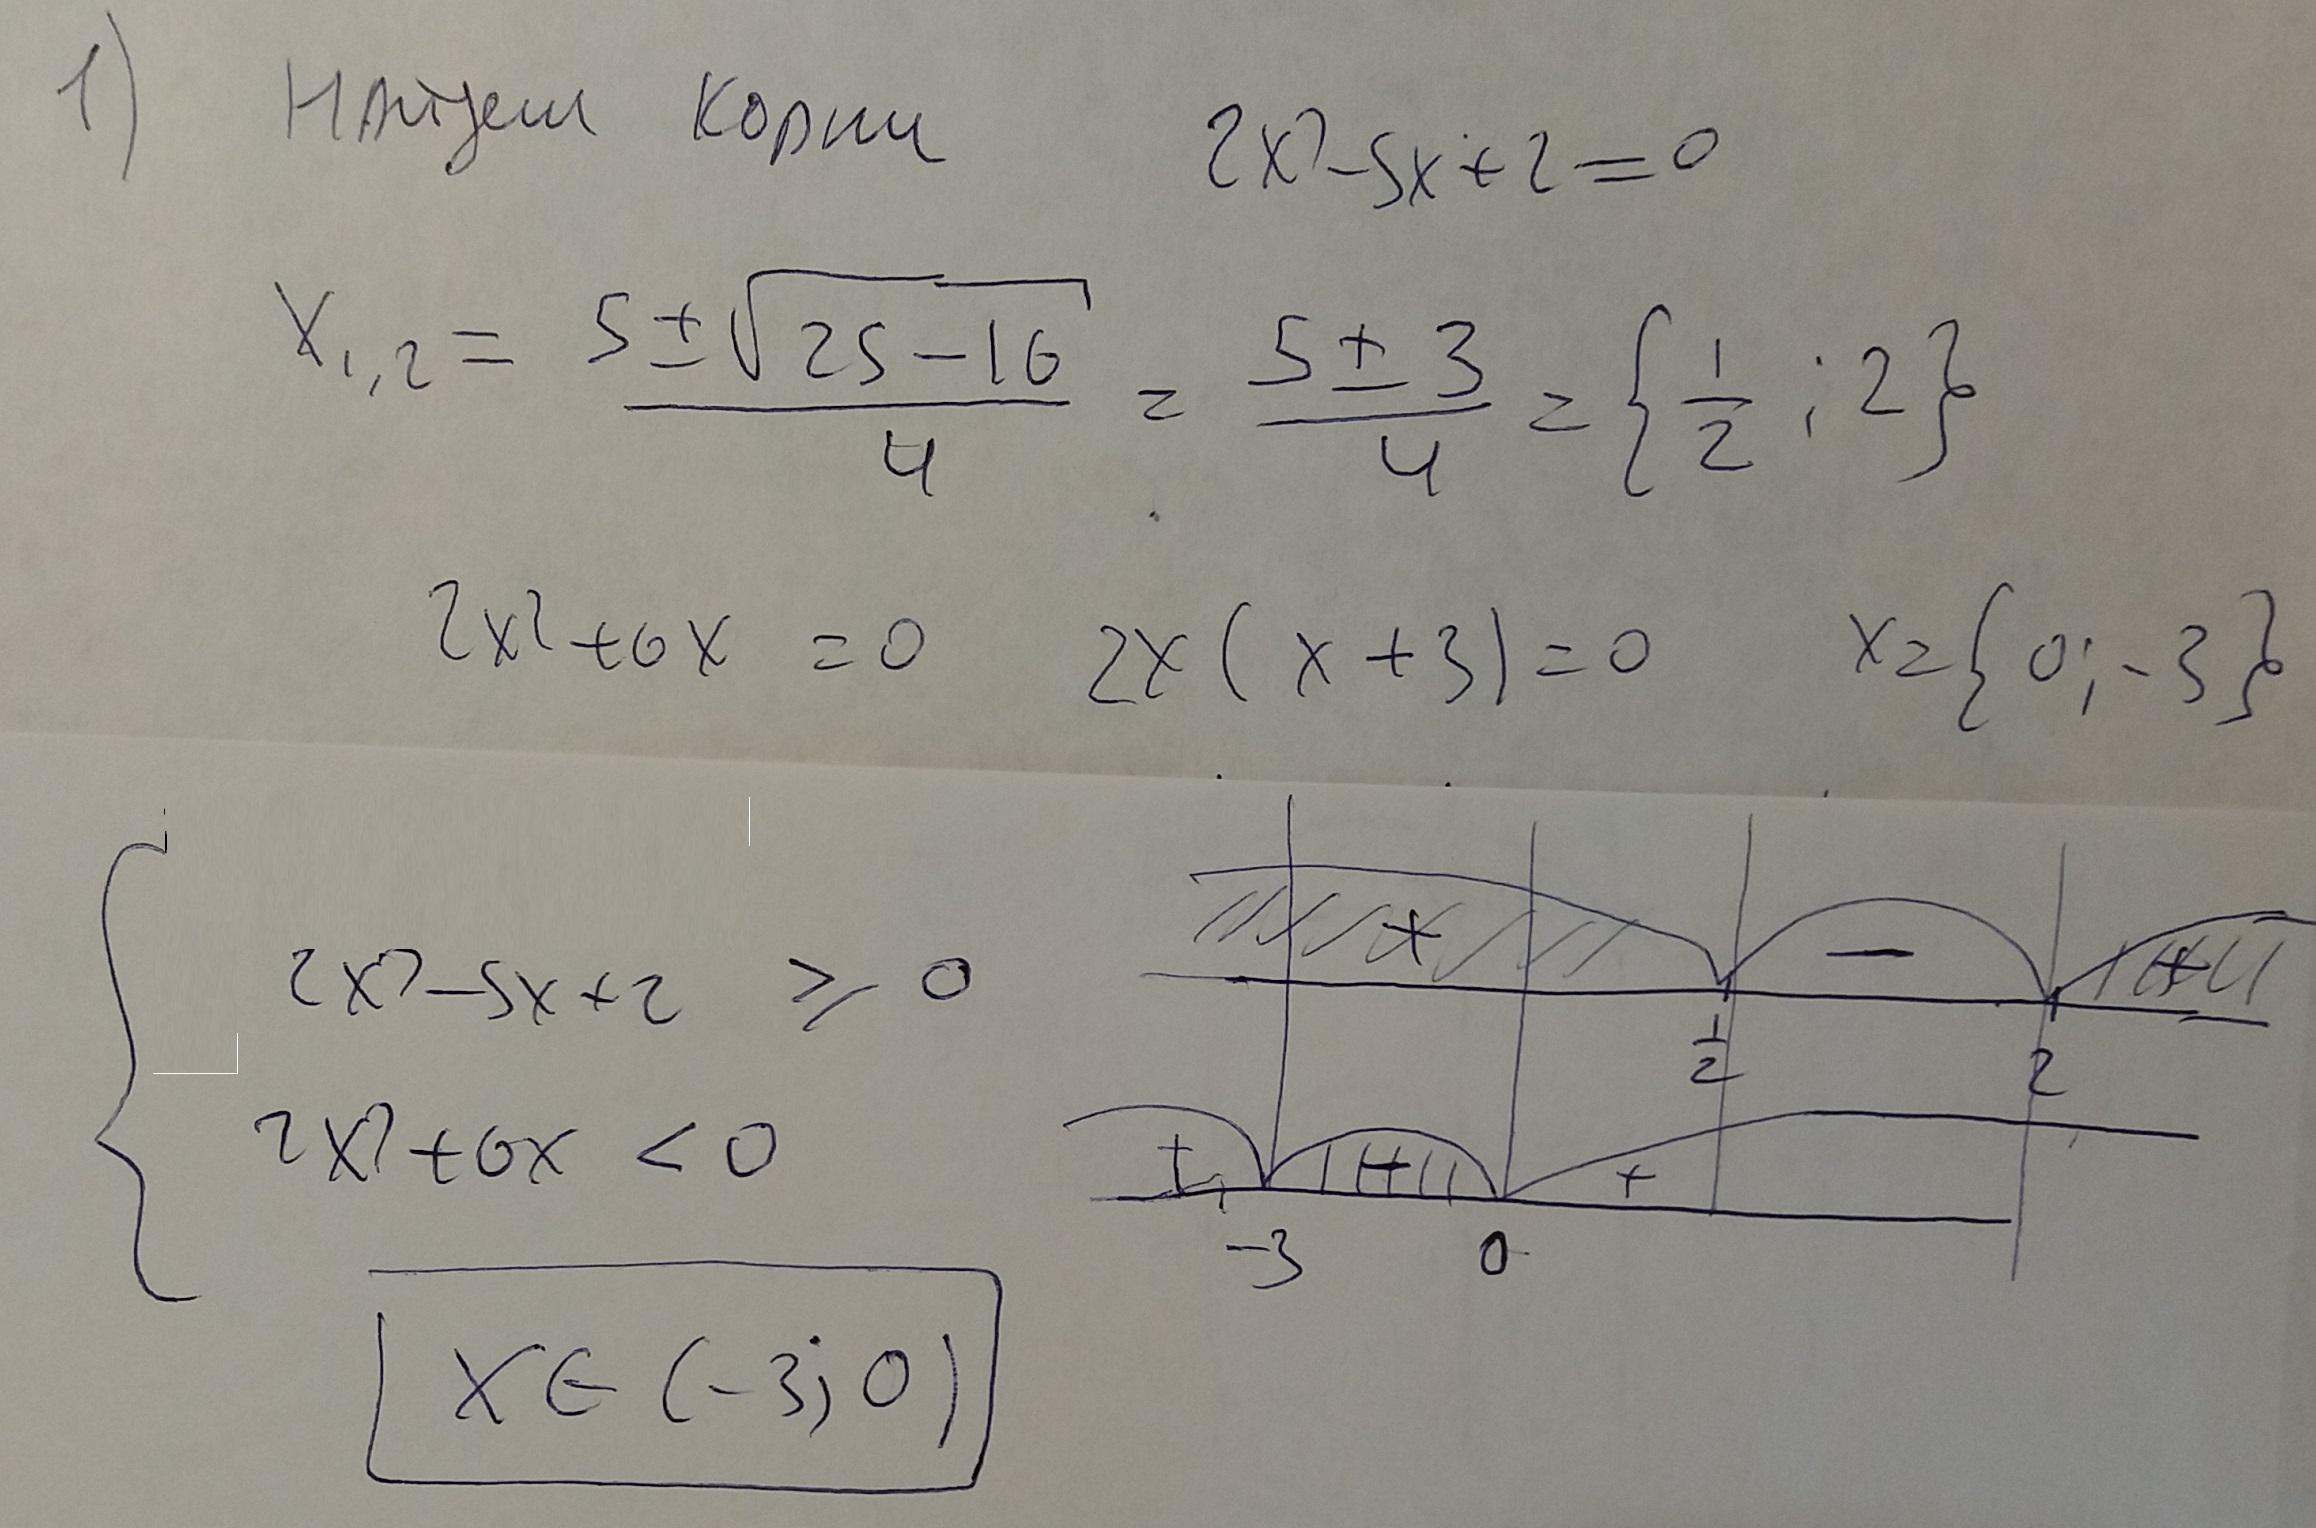 1) Найдем корни 2x²-5x+2=0
x₁,₂ = (5±√(25-16))/4 = (5±3)/4 = {1/2; 2}
2x²+6x=0 2x(x+3)=0 x={0;-3}
2x²-5x+2 ⩾ 0
+ − +
1/2 2
2x²+6x < 0
+ +
-3 0
x∈(-3;0)